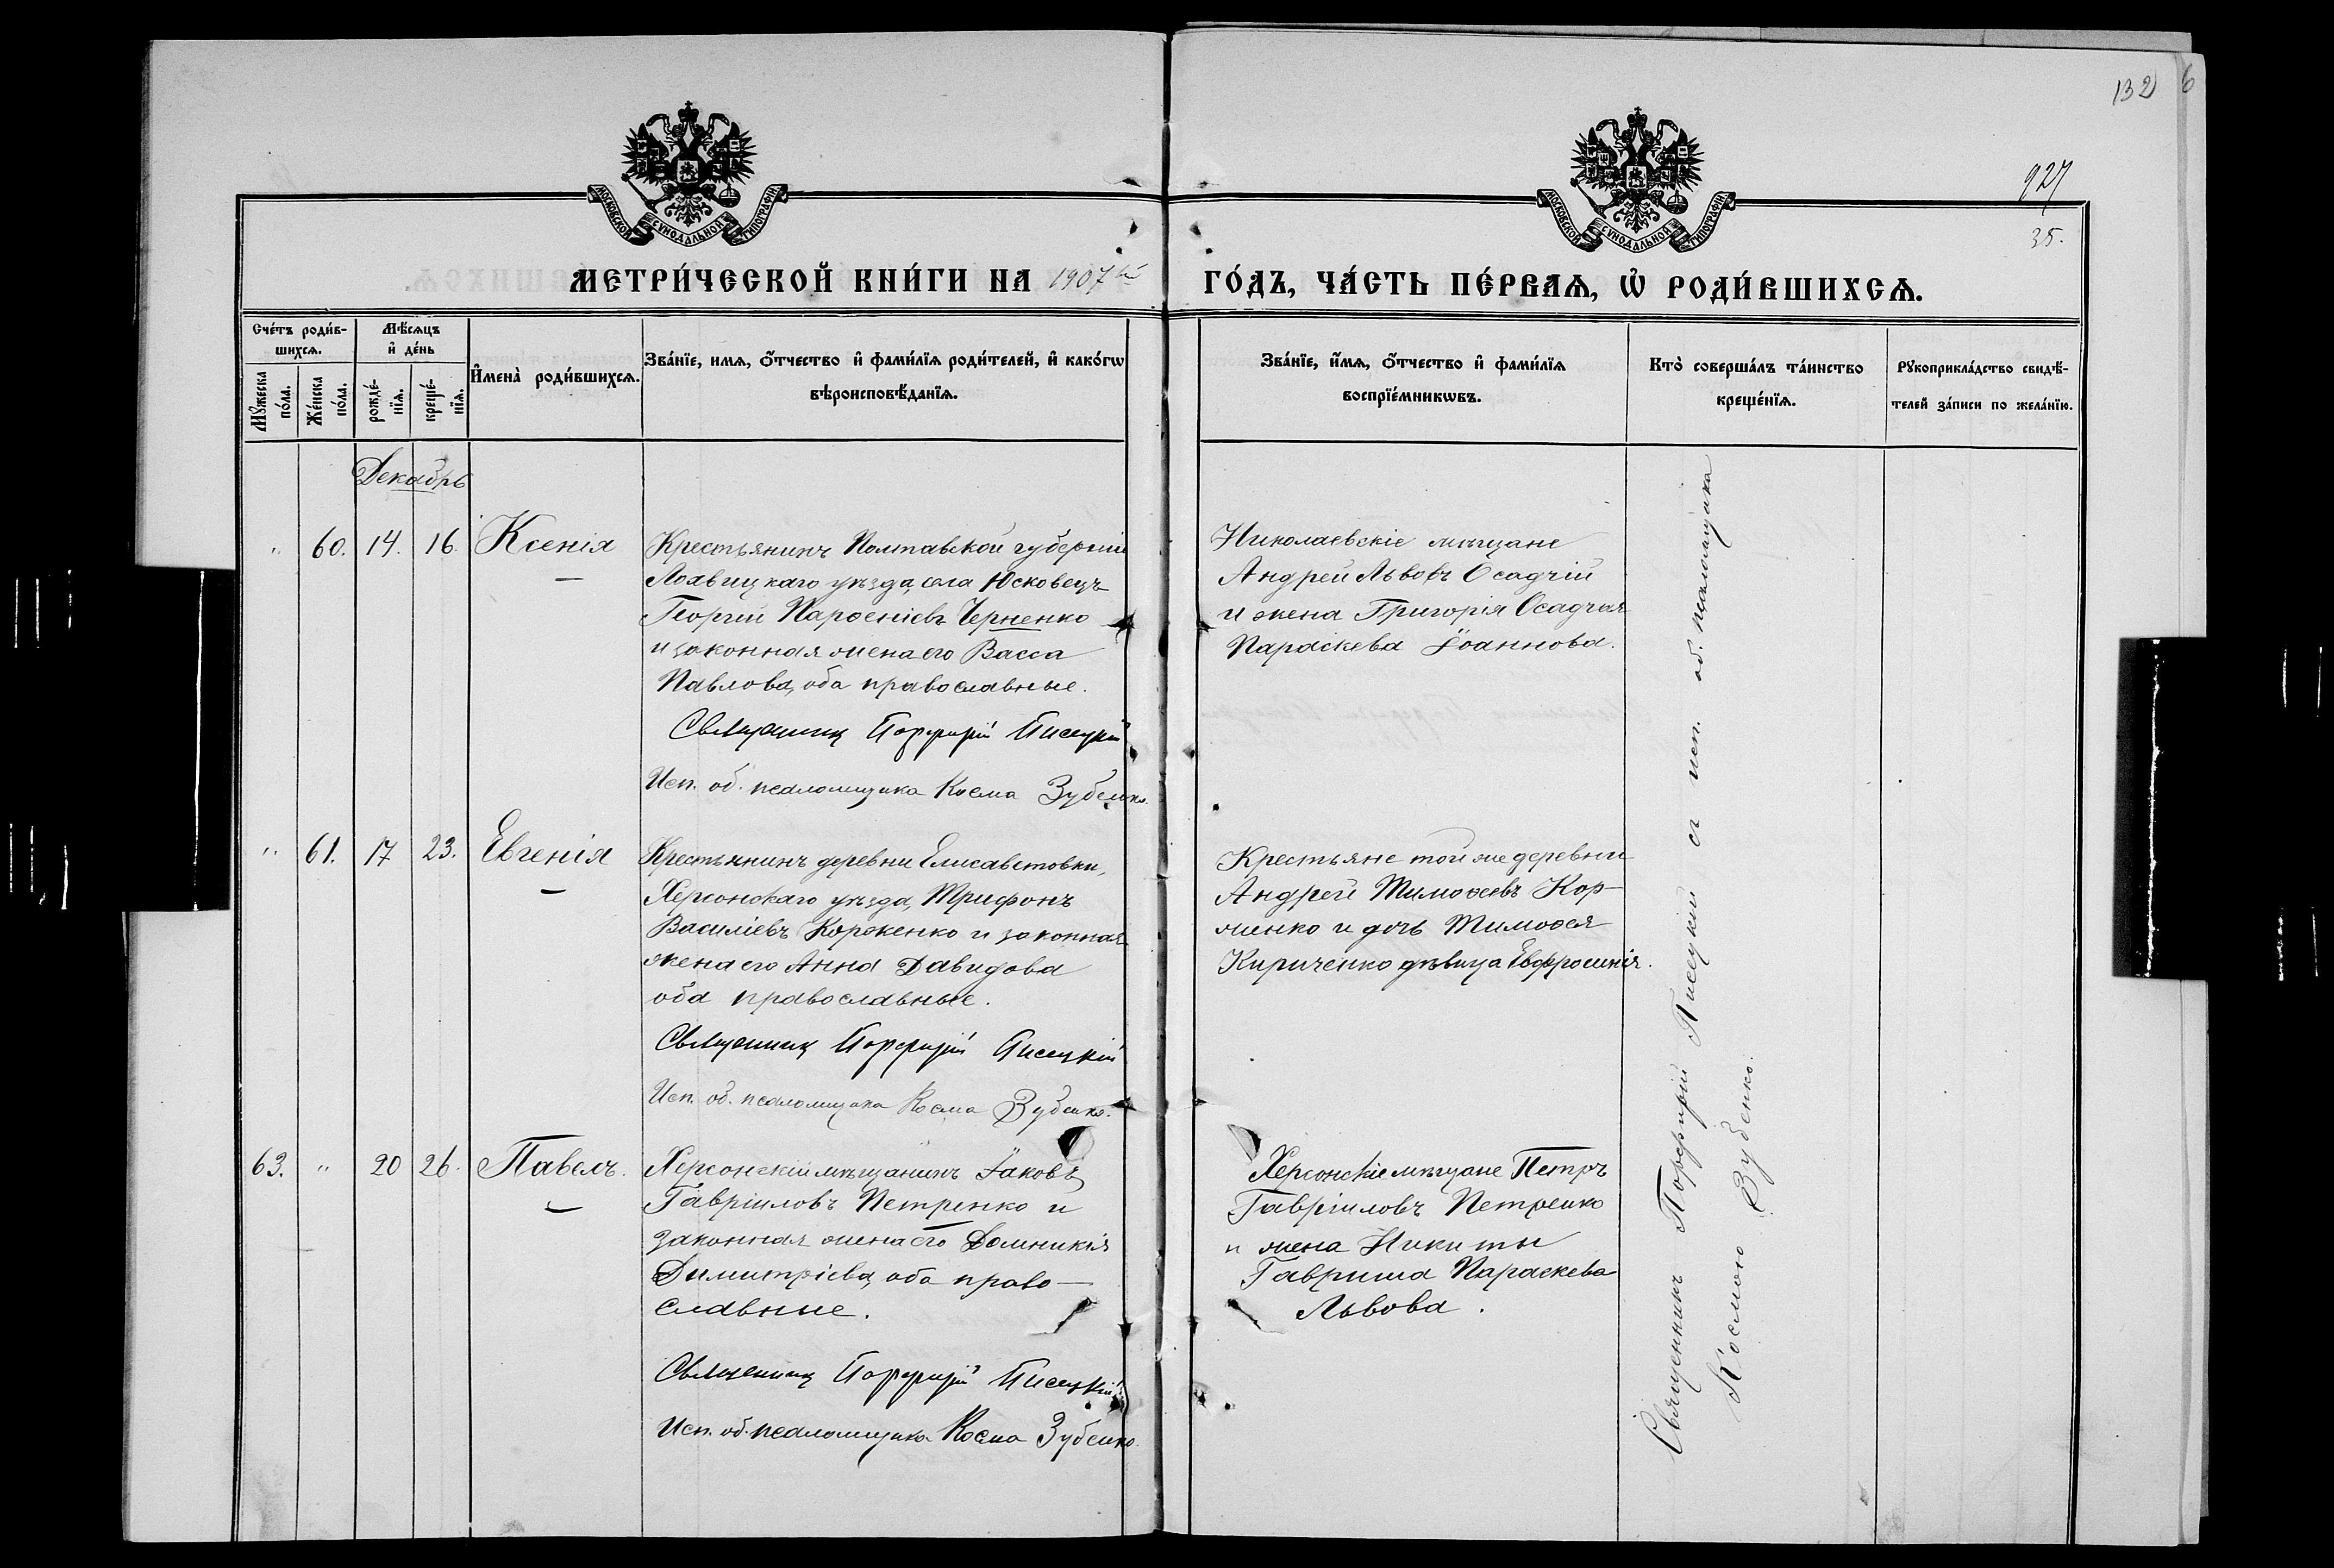 132
6
927
35.
МОСКОВСКОЙ СѴНОДАЛЬНОЙ ТИПОГРАФІИ
МОСКОВСКОЙ СѴНОДАЛЬНОЙ ТИПОГРАФІИ
МЕТРИ́ЧЕСКОЙ КНИ́ГИ НА 1907й
ГО́ДЪ, ЧА́СТЬ ПЕ́РВАѦ, Ѡ҆ РОДИ́ВШИХСѦ.
Сче́тъ роди́в-
шихсѧ.
Мѣ́сѧцъ
и҆ де́нь
Мꙋ́жеска
по́ла.
Же́нска
по́ла.
рожде́-
нїѧ.
креще́-
нїѧ.
И҆мена̀ роди́вшихсѧ.
Зва́нїе, имѧ, ѻ҆́тчество и҆ фами́лїѧ роди́телей, и҆ како́гѡ
вѣроисповѣ́данїѧ.
Зва́нїе, и҆́мѧ, ѻ҆́тчество и҆ фами́лїѧ
воспрїе́мникѡвъ.
Кто̀ соверша́лъ та́инство
креще́нїѧ.
Рꙋкоприкла́дство свидѣ́-
телей за́писи по жела́нїю.
Декабрь
" 60. 14. 16. Ксенія
Крестьянинъ Полтавской губерніи
Лохвицкаго уѣзда, села Юсковецъ
Георгій Парѳеніевъ Черненко
и законная жена его Васса
Павлова, оба православные.
Священникъ Порфирій Писецкій
Исп. об. псаломщика Косма Зубенко.
Николаевскіе мѣщане
Андрей Львовъ Осадчій
и жена Григорія Осадчая
Параскева Іоаннова.
" 61. 17 23. Евгенія
Крестьянинъ деревни Елисаветовки,
Херсонскаго уѣзда, Трифонъ
Василіевъ Корженко и законная
жена его Анна Давидова
оба православные.
Священникъ Порфирій Писецкій
Исп. об. псаломщика Косма Зубенко.
Крестьяне той же деревни
Андрей Тимоѳеевъ Кор-
женко и дочь Тимоѳея
Кириченко дѣвица Евфросинія.
63. " 20 26. Павелъ.
Херсонскій мѣщанинъ Іаковъ
Гавріиловъ Петренко и
законная жена его Домникія
Димитріева, оба право-
славные.
Священникъ Порфирій Писецкій
Исп. об. псаломщика Косма Зубенко.
Херсонскіе мѣщане Петръ
Гавріиловъ Петренко
и жена Никиты
Гавриша Параскева
Львова.
Священникъ Порфирій Писецкій съ исп. об. псаломщика
Космою Зубенко.